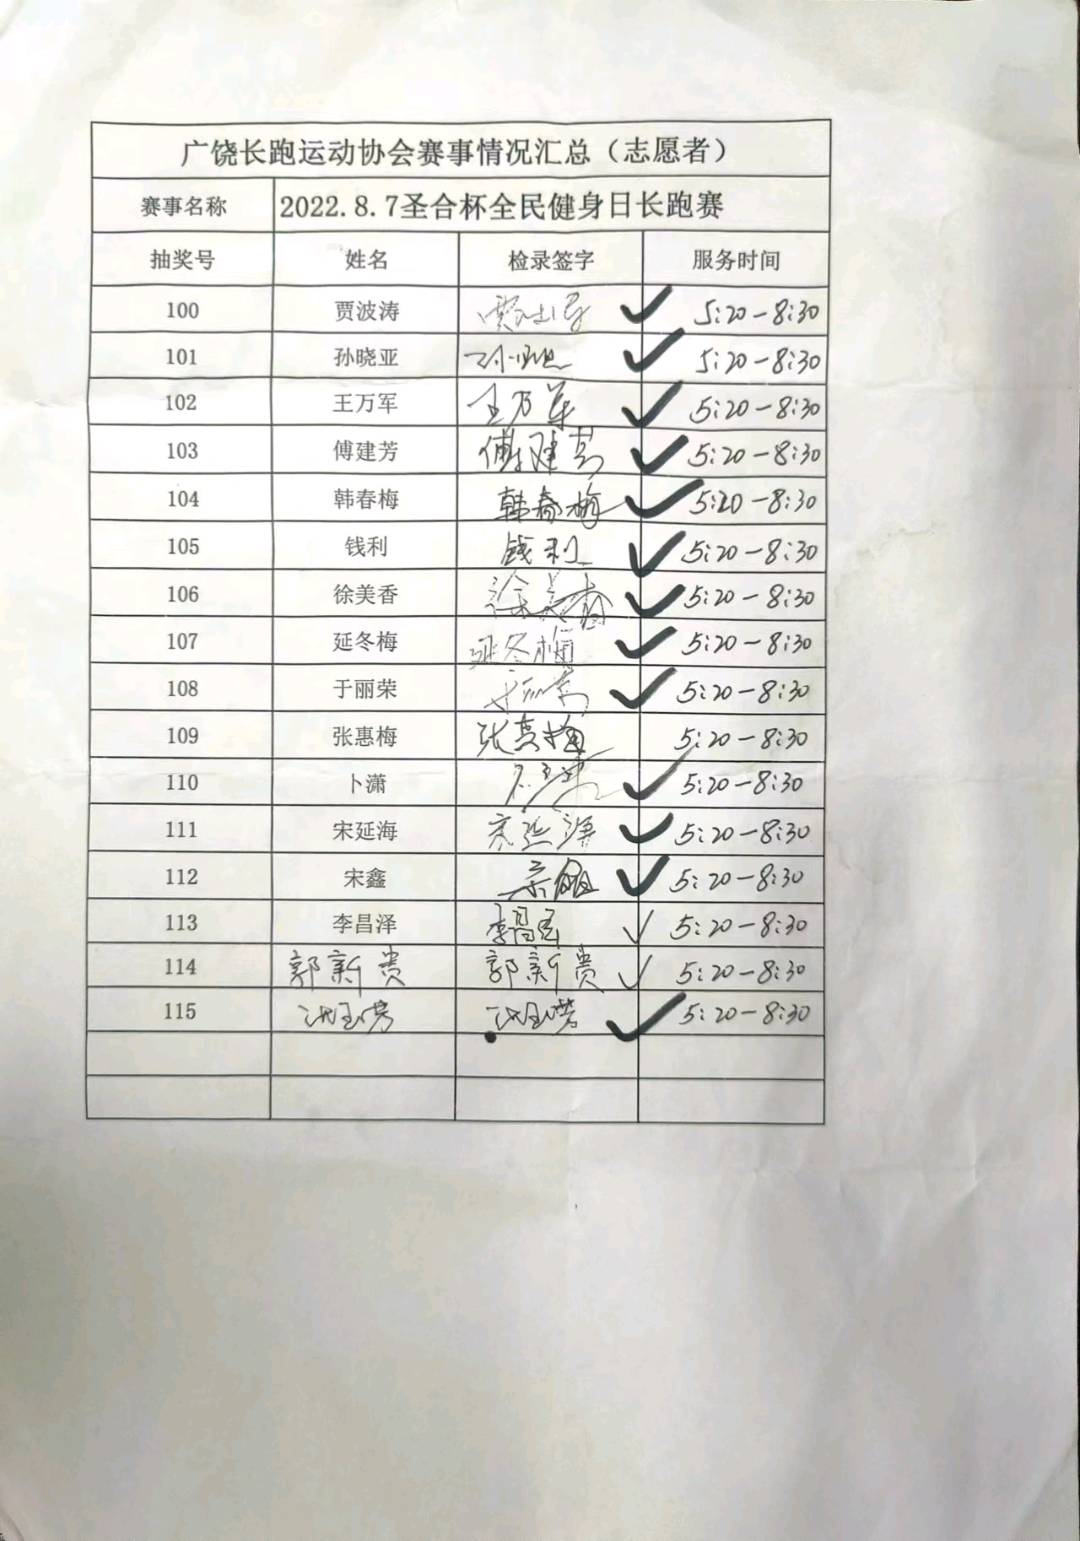 广饶长跑运动协会赛事情况汇总（志愿者）
赛事名称 2022.8.7圣合杯全民健身日长跑赛
抽奖号 姓名 检录签字 服务时间
100 贾波涛 贾波涛 ✓ 5:20-8:30
101 孙晓亚 孙晓亚 ✓ 5:20-8:30
102 王万军 王万军 ✓ 5:20-8:30
103 傅建芳 傅建芳 ✓ 5:20-8:30
104 韩春梅 韩春梅 ✓ 5:20-8:30
105 钱利 钱利 ✓ 5:20-8:30
106 徐美香 徐美香 ✓ 5:20-8:30
107 延冬梅 延冬梅 ✓ 5:20-8:30
108 于丽荣 于丽荣 ✓ 5:20-8:30
109 张惠梅 张惠梅 5:20-8:30
110 卜潇 ✓ 5:20-8:30
111 宋延海 宋延海 ✓ 5:20-8:30
112 宋鑫 宋鑫 ✓ 5:20-8:30
113 李昌泽 李昌泽 ✓ 5:20-8:30
114 郭新贵 郭新贵 ✓ 5:20-8:30
115 ✓ 5:20-8:30